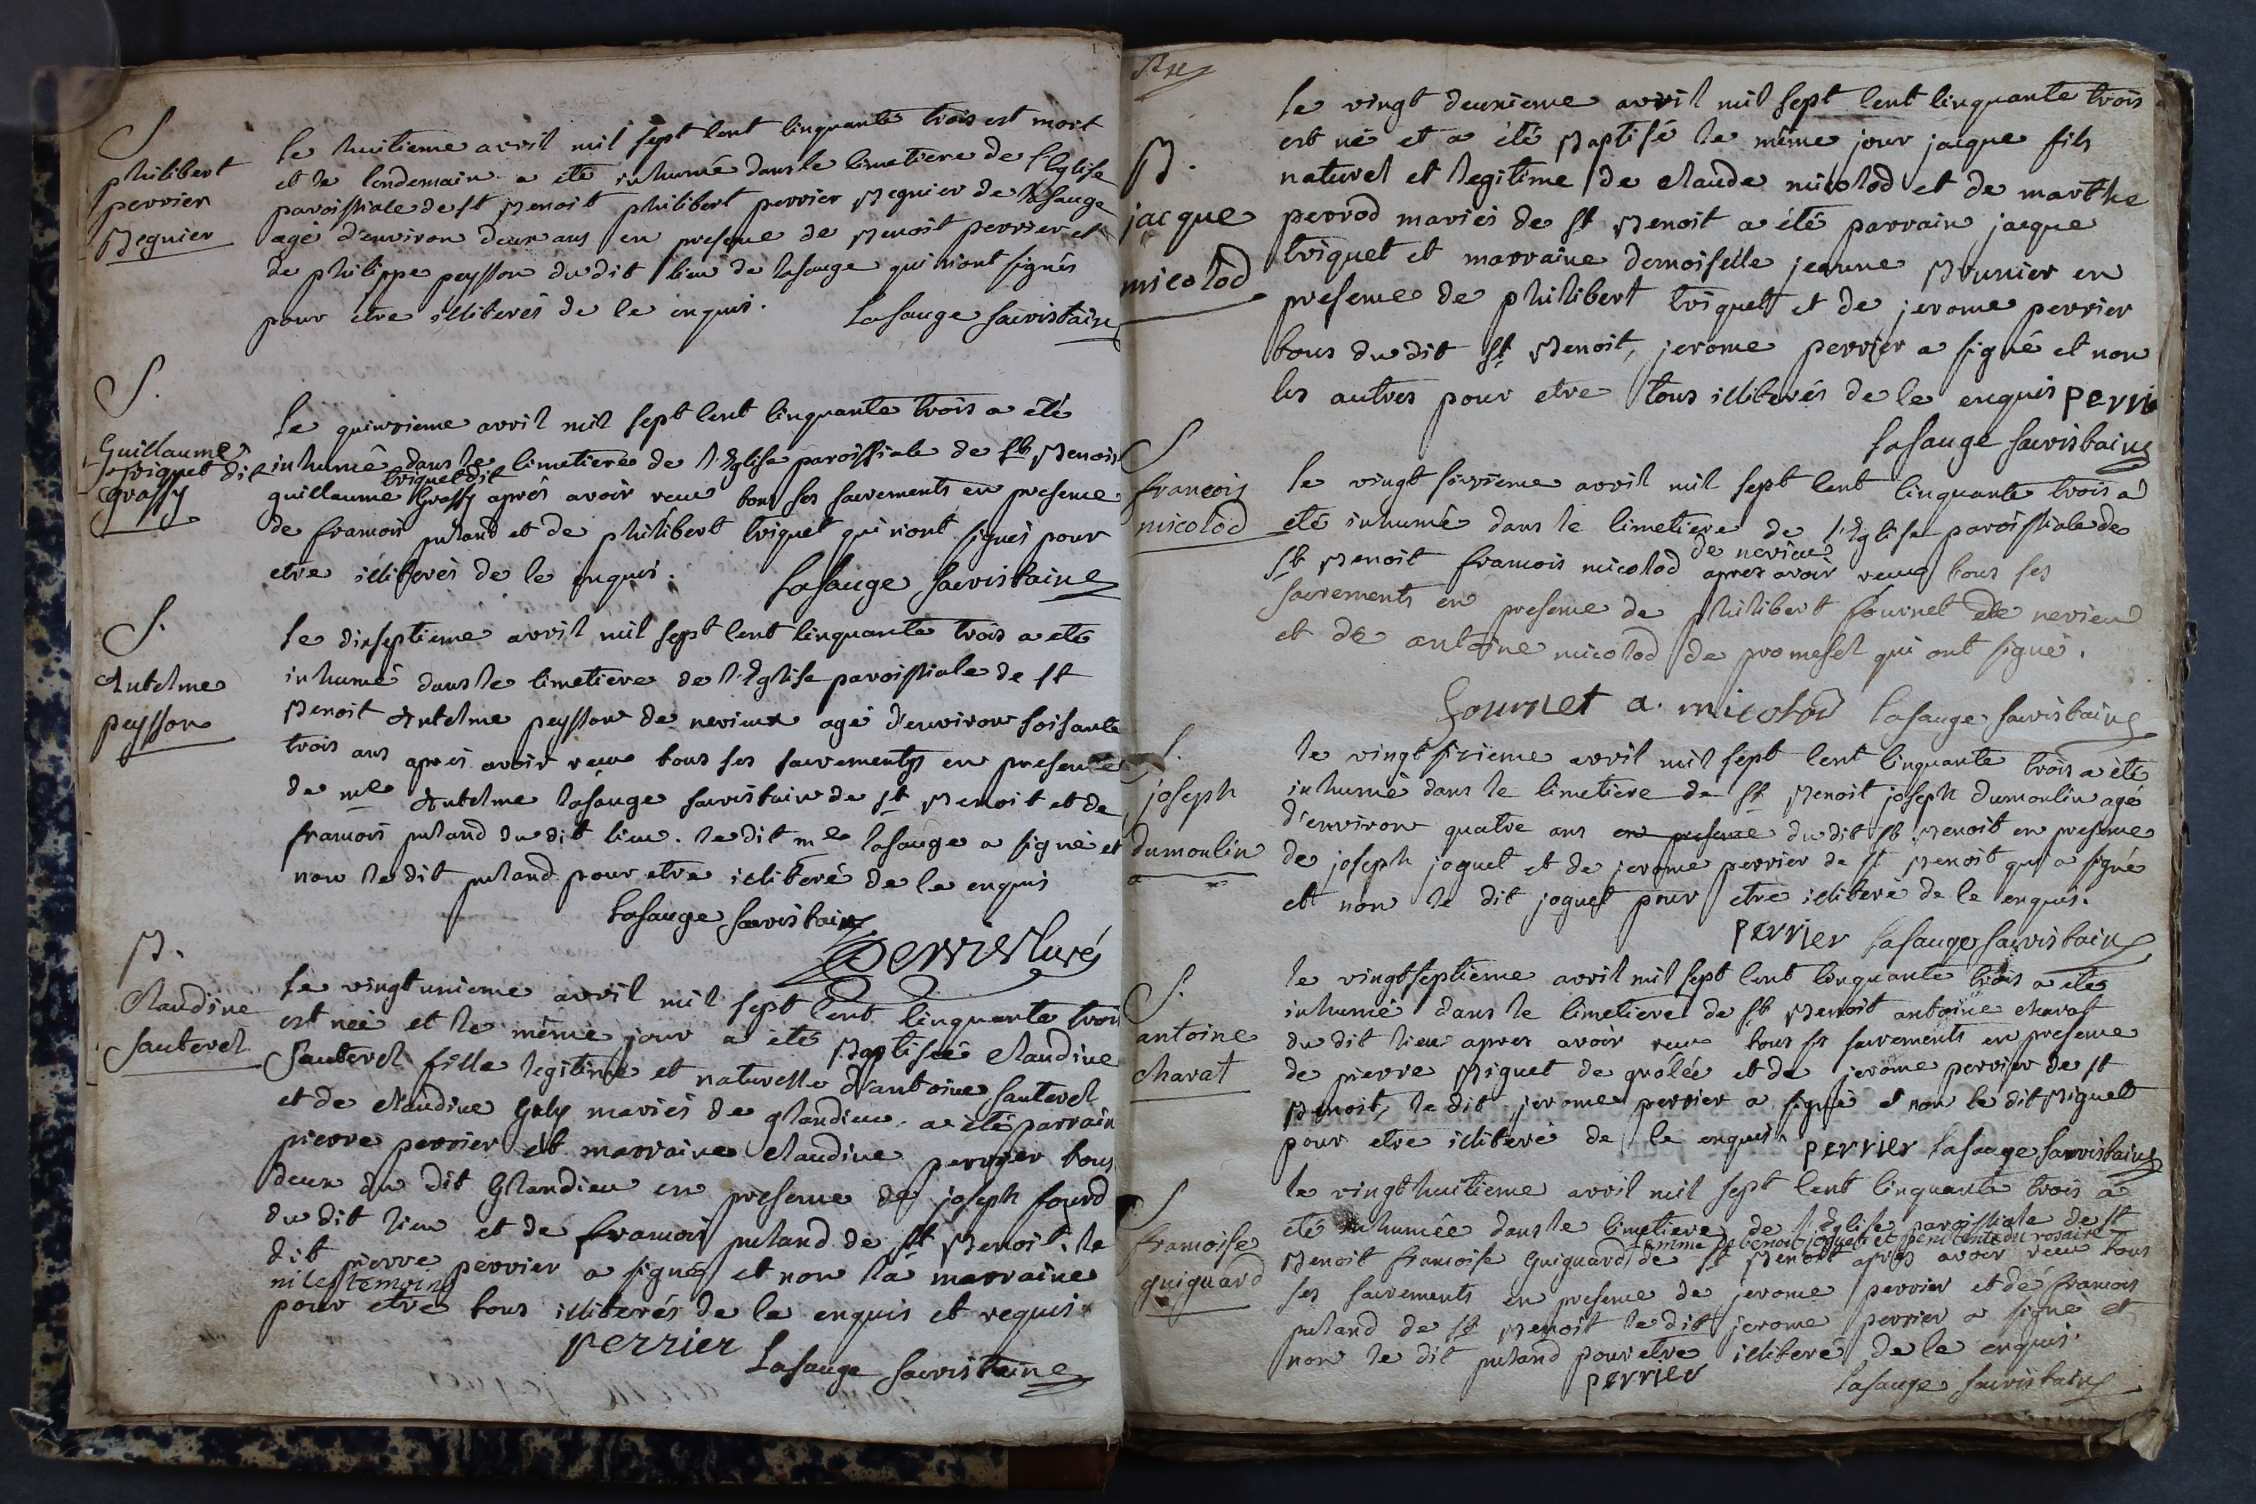 S
philibert
perrier
Begnier
le huitieme avril mil sept cent cinquante trois est mort
et le lendemain a été inhumé dans le cimetiere de l'Eglise
paroissiale de st Benoit philibert perrier Begnier de lasauge
agé d'environ deux ans en presence de Benoit perrier et
de philippe peysson dudit lieu de lasauge qui n'ont signés
pour etre illiterés de ce enquis.
Lasauge sacristain
S.
Guillaume
triquet dit
Grassy
Le quinzieme avril mil sept cent cinquante trois a été
inhumé dans le cimetiere de l'Eglise paroissiale de st Benoit
triquet dit
guillaume Grassy aprés avoir receu tous ses sacrements en presence
de francois puland et de philibert triquet qui n'ont signés pour
etre illiterés de ce enquis.
Lasauge sacristain
S.
Antelme
peysson
Le dixseptieme avril mil sept cent cinquante trois a eté
inhumé dans le cimetiere de l'Eglise paroissiale de st
Benoit Antelme peysson de nevieux agé d'environ soisante
trois ans aprés avoir receu tous ses sacrements en presence
de mre Antelme lasauge sacristain de st Benoit et de
francois puland dudit lieu. ledit mre lasauge a signé et
non ledit puland pour etre illiteré de ce enquis
Lasauge sacristain
perrier curé
B.
Claudine
Sauterel
Le vingtunieme avril mil sept cent cinquante trois
est née et le même jour a été Baptisée Claudine
Sauterel fille legitime et naturelle d'antoine Sauterel
et de claudine Guly mariés de glandieu. a été parrain
pierre perrier et marraine claudine perrier tous
deux du dit Glandieu en presence de joseph fourd
du dit lieu et de francois puland de st Benoit. le
dit pierre perrier a signé et non la marraine
ni les temoins
pour etre tous illiterés de ce enquis et requis
perrier
Lasauge sacristain
B.
jacque
micolod
le vingt deuxieme avril mil sept cent cinquante trois
est né et a été Baptisé le même jour jacque fils
naturel et legitime de claude micolod et de marthe
perrod mariés de st Benoit a été parrain jacque
triquet et marraine demoiselle jeanne Brunier en
presence de philibert triquet et de jerome perrier
tous du dit st Benoit, jerome perrier a signé et non
les autres pour etre tous illiterés de ce enquis perrie
Lasauge sacristain
S
francois
micolod
le vingt sixieme avril mil sept cent cinquante trois a
été inhumé dans le cimetiere de l'Eglise paroissiale de
de nevieu
st Benoit francois micolod apres avoir receu tous ses
sacrements en presence de philibert fournet de nevieu
et de antoine micolod de promesel qui ont signé.
fournet a. micolod lasauge sacristain
S.
joseph
dumoulin
le vingt sixieme avril mil sept cent cinquante trois a été
inhumé dans le cimetiere de st Benoit joseph dumoulin agé
d'environ quatre ans en presence dudit st Benoit en presence
de joseph joquet et de jerome perrier de st Benoit qui a signé
et non le dit joquet pour etre illiteré de ce enquis.
perrier Lasauge sacristain
S.
antoine
charat
le vingtseptieme avril mil sept cent cinquante trois a été
inhumé dans le cimetiere de st Benoit antoine charat
du dit lieu apres avoir receu tous ses sacrements en presence
de pierre Biguet de grolée et de jerome perrier de st
Benoit, le dit jerome perrier a signé et non le dit Biguet
pour etre illiteré de ce enquis perrier Lasauge sacristain
S
francoise
guiguard
le vingthuitieme avril mil sept cent cinquante trois a
eté inhumée dans le cimetiere de l'Eglise paroissiale de st
femme de benoit joquet et penitente du rosaire
Benoit francoise Guiguard de st Benoit apres avoir receu tous
ses sacrements en presence de jerome perrier et de francois
puland de st Benoit le dit jerome perrier a signé et
non le dit puland pour etre illiteré de ce enquis.
perrier
Lasauge sacristain